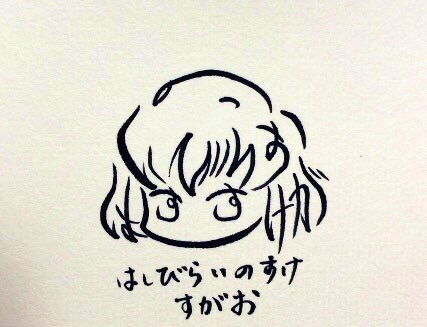 はしびらいのすけ
すがお